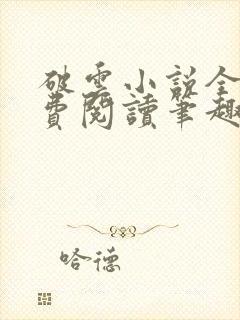 破雲小說全
費閱讀筆趣
哈德